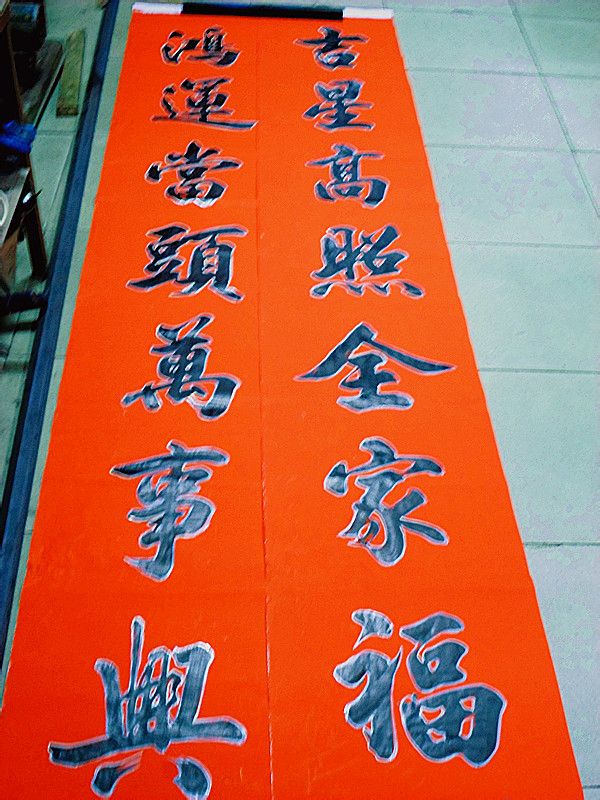 吉星高照全家福
鴻運當頭萬事興